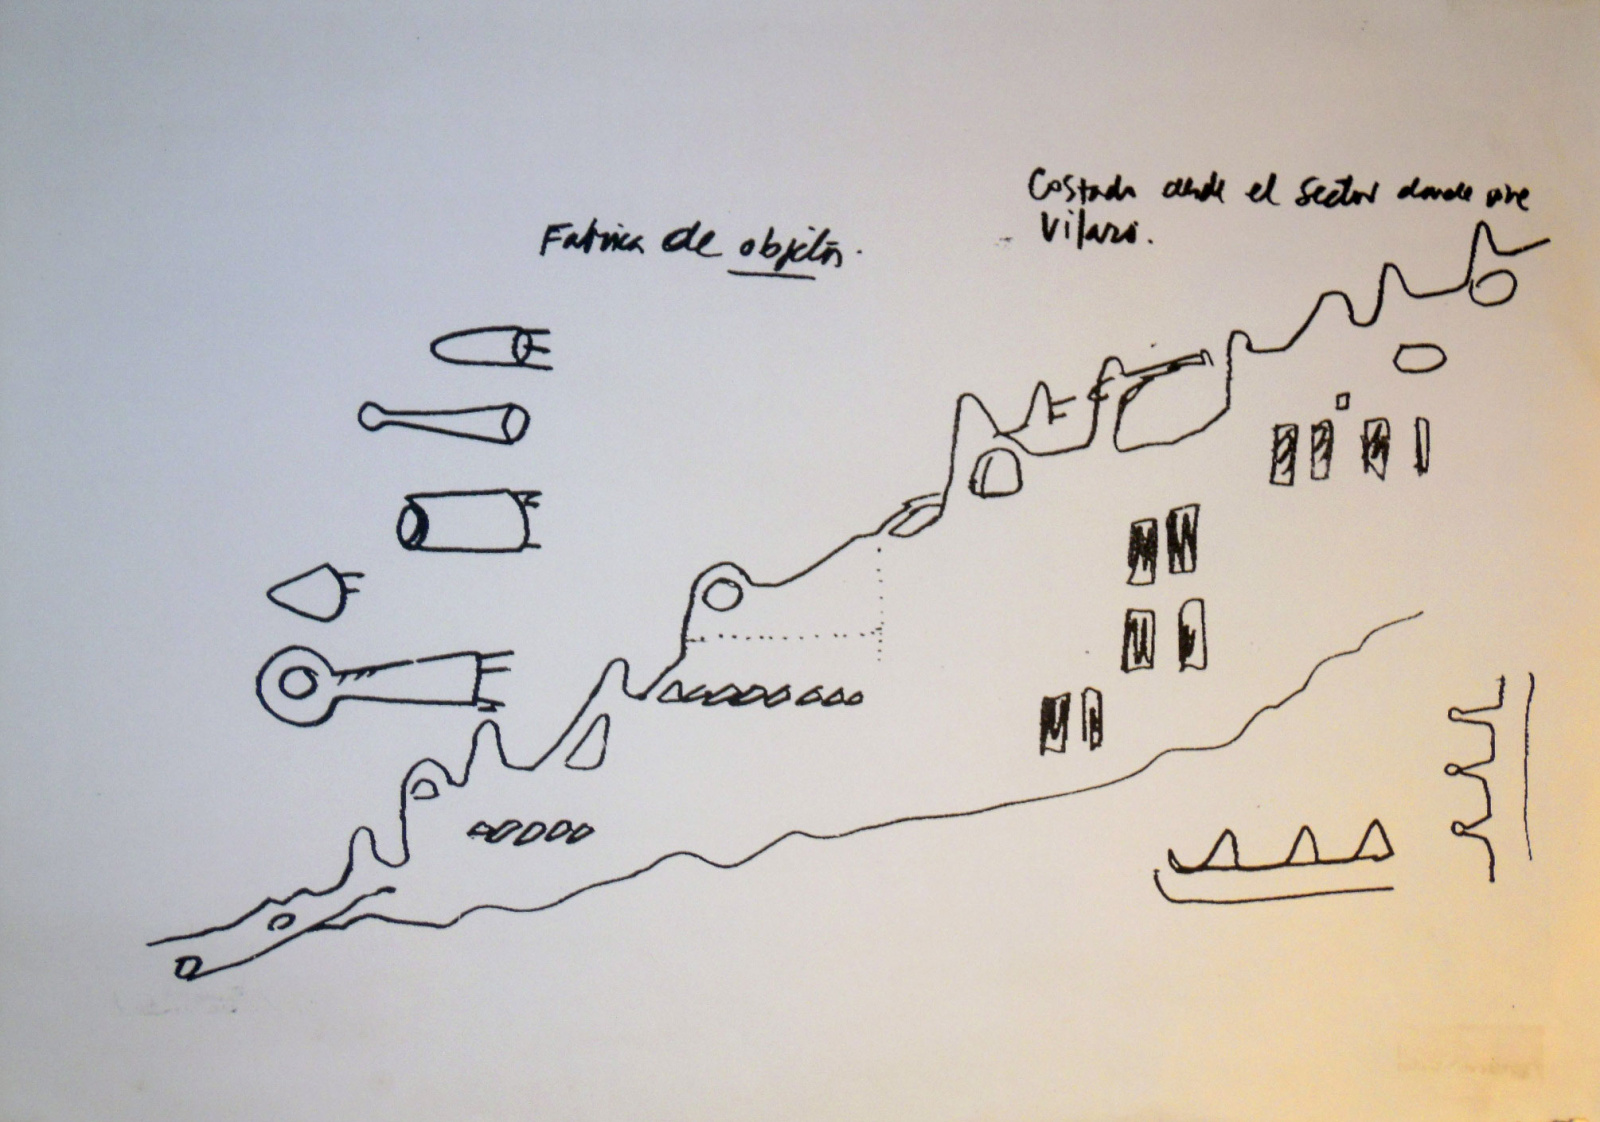 Fabrica de objetos.
Costado desde el sector donde vive
Vilazo.